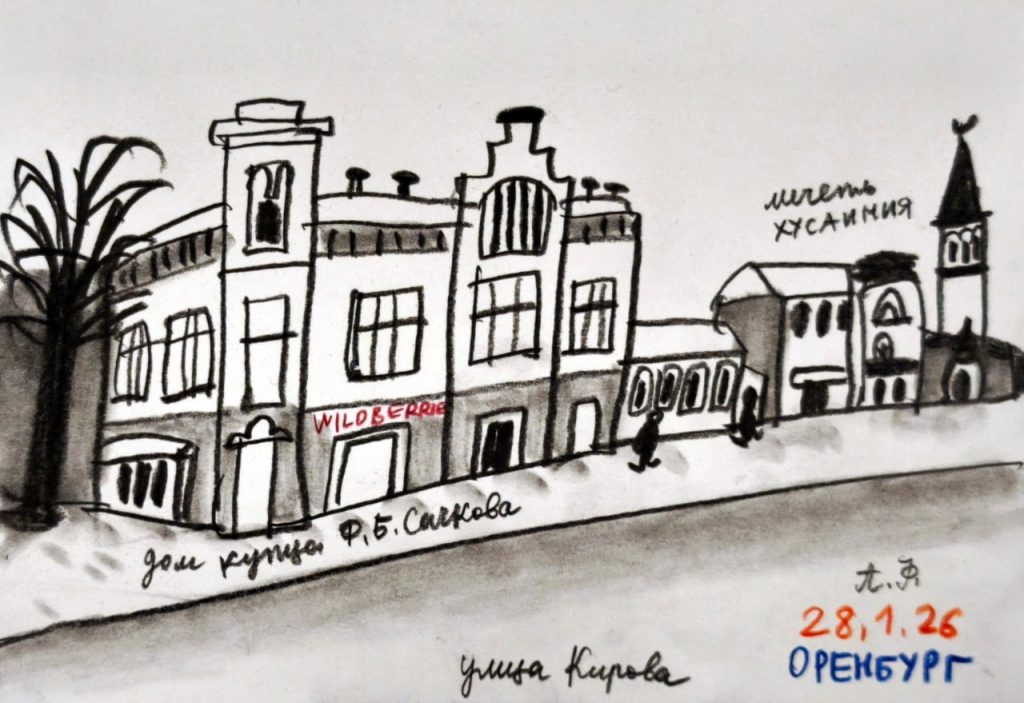 мечеть
ХУСАИНИЯ
WILDBERRIE
дом купца Ф.Б. Сачкова
А.Ф
28.1.26
ОРЕНБУРГ
улица Кирова